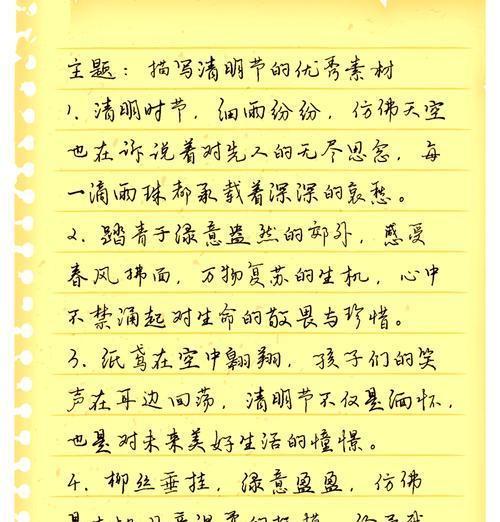 主题：描写清明节的优秀素材
1. 清明时节，细雨纷纷，仿佛天空
也在诉说着对先人的无尽思念，每
一滴雨珠都承载着深深的哀愁。
2. 踏青于绿意盎然的郊外，感受
春风拂面，万物复苏的生机，心中
不禁涌起对生命的敬畏与珍惜。
3. 纸鸢在空中翱翔，孩子们的笑
声在耳边回荡，清明节不仅是缅怀，
也是对未来美好生活的憧憬。
4. 柳丝垂挂，绿意盈盈，仿佛